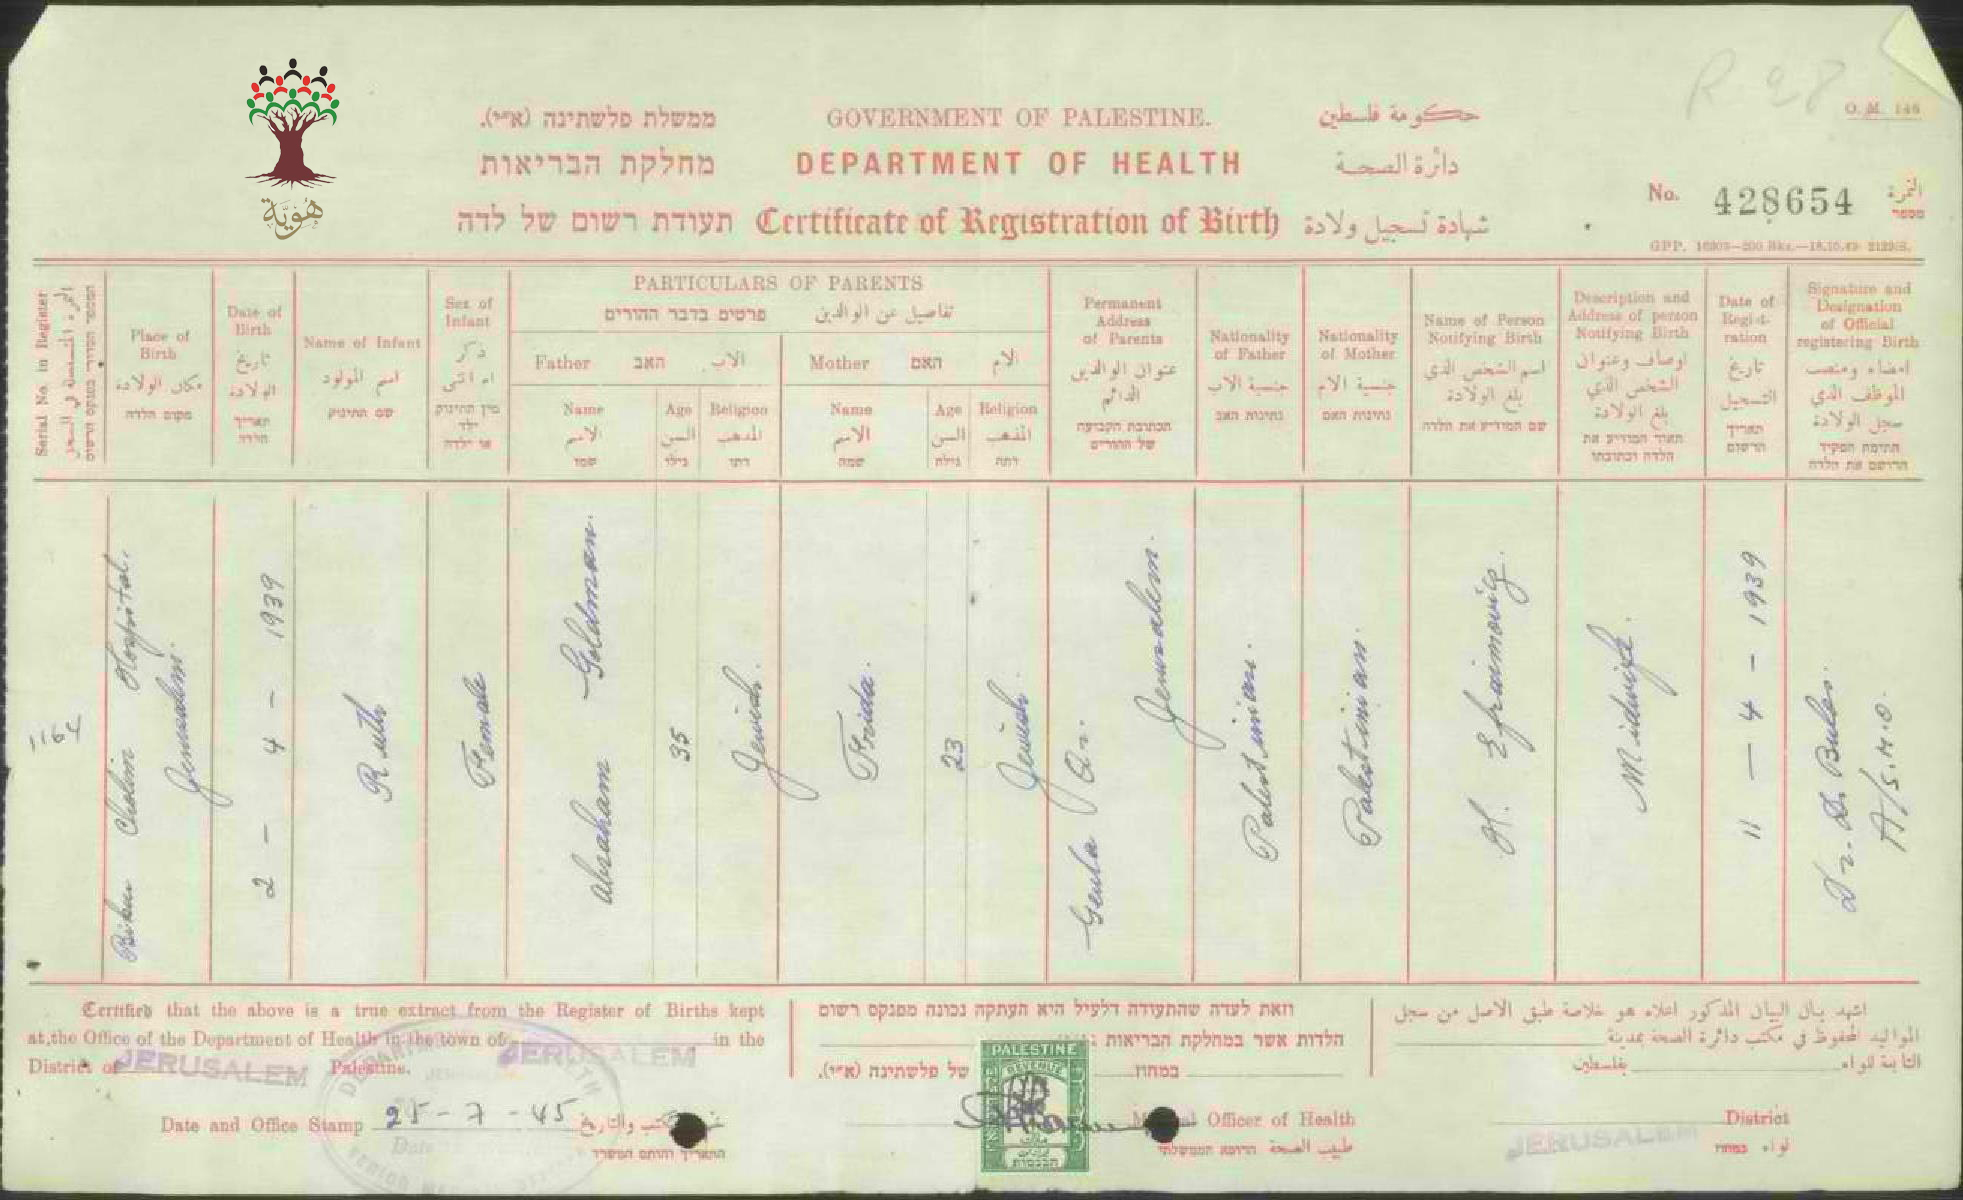 هُوِيَّة
R 28
O.M. 146
ממשלת פלשתינה (א״י). GOVERNMENT OF PALESTINE. حكومة فلسطين
מחלקת הבריאות DEPARTMENT OF HEALTH دائرة الصحة
No. 428654 النمرة מספר
תעודת רשום של לדה Certificate of Registration of Birth شهادة تسجيل ولادة
Serial No. in Register
Place of Birth مكان الولادة מקום הלדה
Date of Birth تاريخ الولادة תאריך הלדה
Name of Infant اسم المولود שם התינוק
Sex of Infant ذكر ام انثى מין התינוק ילד או ילדה
PARTICULARS OF PARENTS
פרטים בדבר ההורים تفاصيل عن الوالدين
Father האב الاب
Name الاسم שמו
Age السن גילו
Religion المذهب דתו
Mother האם الام
Name الاسم שמה
Age السن גילה
Religion المذهب דתה
Permanent Address of Parents عنوان الوالدين الدائم הכתובת הקבועה של ההורים
Nationality of Father جنسية الاب נתינות האב
Nationality of Mother جنسية الام נתינות האם
Name of Person Notifying Birth اسم الشخص الذي بلغ الولادة שם המודיע את הלדה
Description and Address of person Notifying Birth اوصاف وعنوان الشخص الذي بلغ الولادة תאור המודיע את הלדה וכתובתו
Date of Regist-ration تاريخ التسجيل תאריך הרשום
Signature and Designation of Official registering Birth امضاء ومنصب الموظف الذي سجل الولادة חתימת הפקיד הרושם את הלדה
Bikur Cholim Hospital. Jerusalem.
2 - 4 - 1939
Ruth
Female
Abraham Goldman.
35
Jewish.
Frida.
23
Jewish.
Geula Qr. Jerusalem.
Palestinian.
Palestinian.
H. Efraimovig.
Midwife.
11 - 4 - 1939
A/S.M.O
Certified that the above is a true extract from the Register of Births kept
at the Office of the Department of Health in the town of JERUSALEM in the
District of JERUSALEM Palestine.
Date and Office Stamp 25-7-45
וזאת לעדה שהתעודה דלעיל היא העתקה נכונה מפנקס רשום
הלדות אשר במחלקת הבריאות
במחוז של פלשתינה (א״י).
PALESTINE
REVENUE
Officer of Health
طبيب الصحة הרופא הממשלתי
التاريخ
התאריך וחותם המשרד
اشهد بان البيان المذكور اعلاه هو خلاصة طبق الاصل من سجل
المواليد المحفوظ في مكتب دائرة الصحة بمدينة
التابعة للواء بفلسطين
JERUSALEM District
لواء במחוז